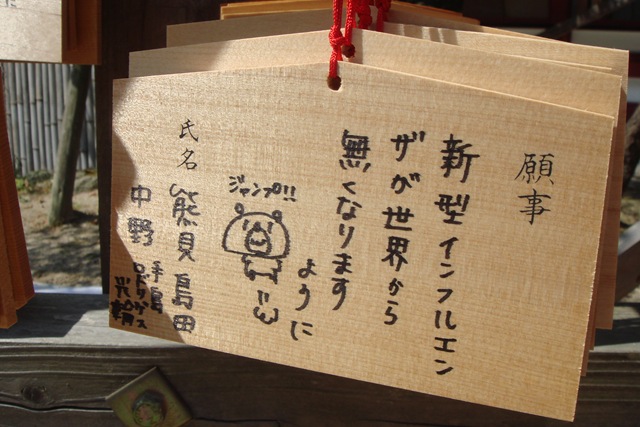 願事
新型インフルエン
ザが世界から
無くなります
ように
ジャンプ!!
氏名
熊貝島田
中野 手島
ロドリゲス
光輪